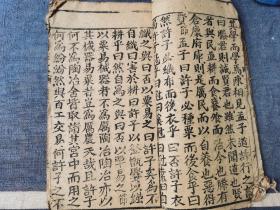 其學而學焉陳相見孟子道許行之言
曰滕君則誠賢君也雖然未聞道也賢
者與民並耕而食饔飧而治今也滕有
倉廩府庫則是厲民而以自養也惡得
賢孟子曰許子必種粟而後食乎曰
然許子必織布而後衣乎曰否許子衣
織之與曰否以粟易之曰許子奚為不
自織曰害於耕曰許子以釜甑爨以鐵
耕乎曰然自為之與曰否以粟易之
以粟易械器者不為厲陶冶陶冶亦以
其械器易粟者豈為厲農夫哉且許子
何不為陶冶舍皆取諸其宮中而用之
何為紛紛然與百工交易何許子之不